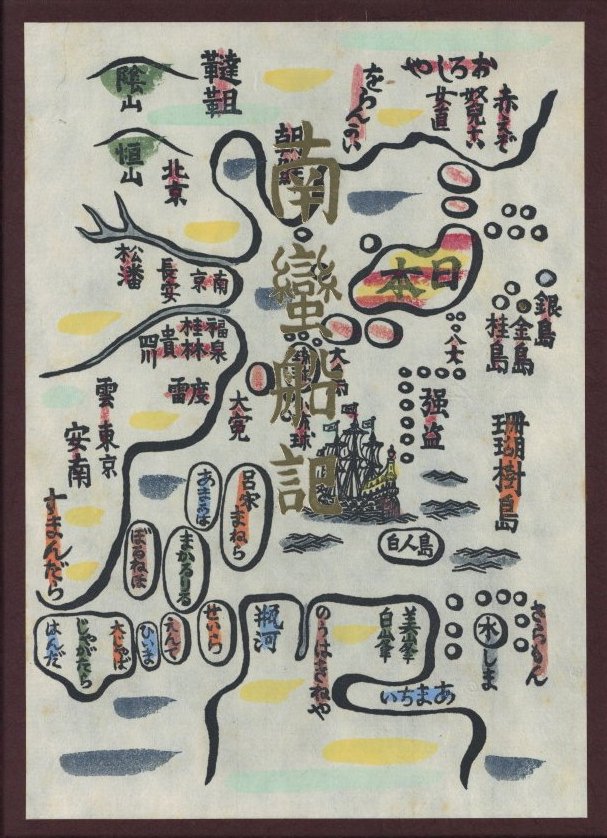 南蠻船記
陰山
韃靼
恒山
北京
おろしや
をらんかい
女直
赤えぞ
日本
銀島
金島
桂島
松潘
長安
南京
福泉
桂林
貴
四川
雷度
大寃
雲
東京
安南
八丈
强盗
珊瑚樹島
白人島
呂宋まねら
あまかは
まかるりる
ぼるねほ
すまんだら
はんだ
じゃがたら
大じゃば
ひいま
えんで
せいら
瓶河
のうはきねや
白峯
美峯
あまちい
水しま
さらもん